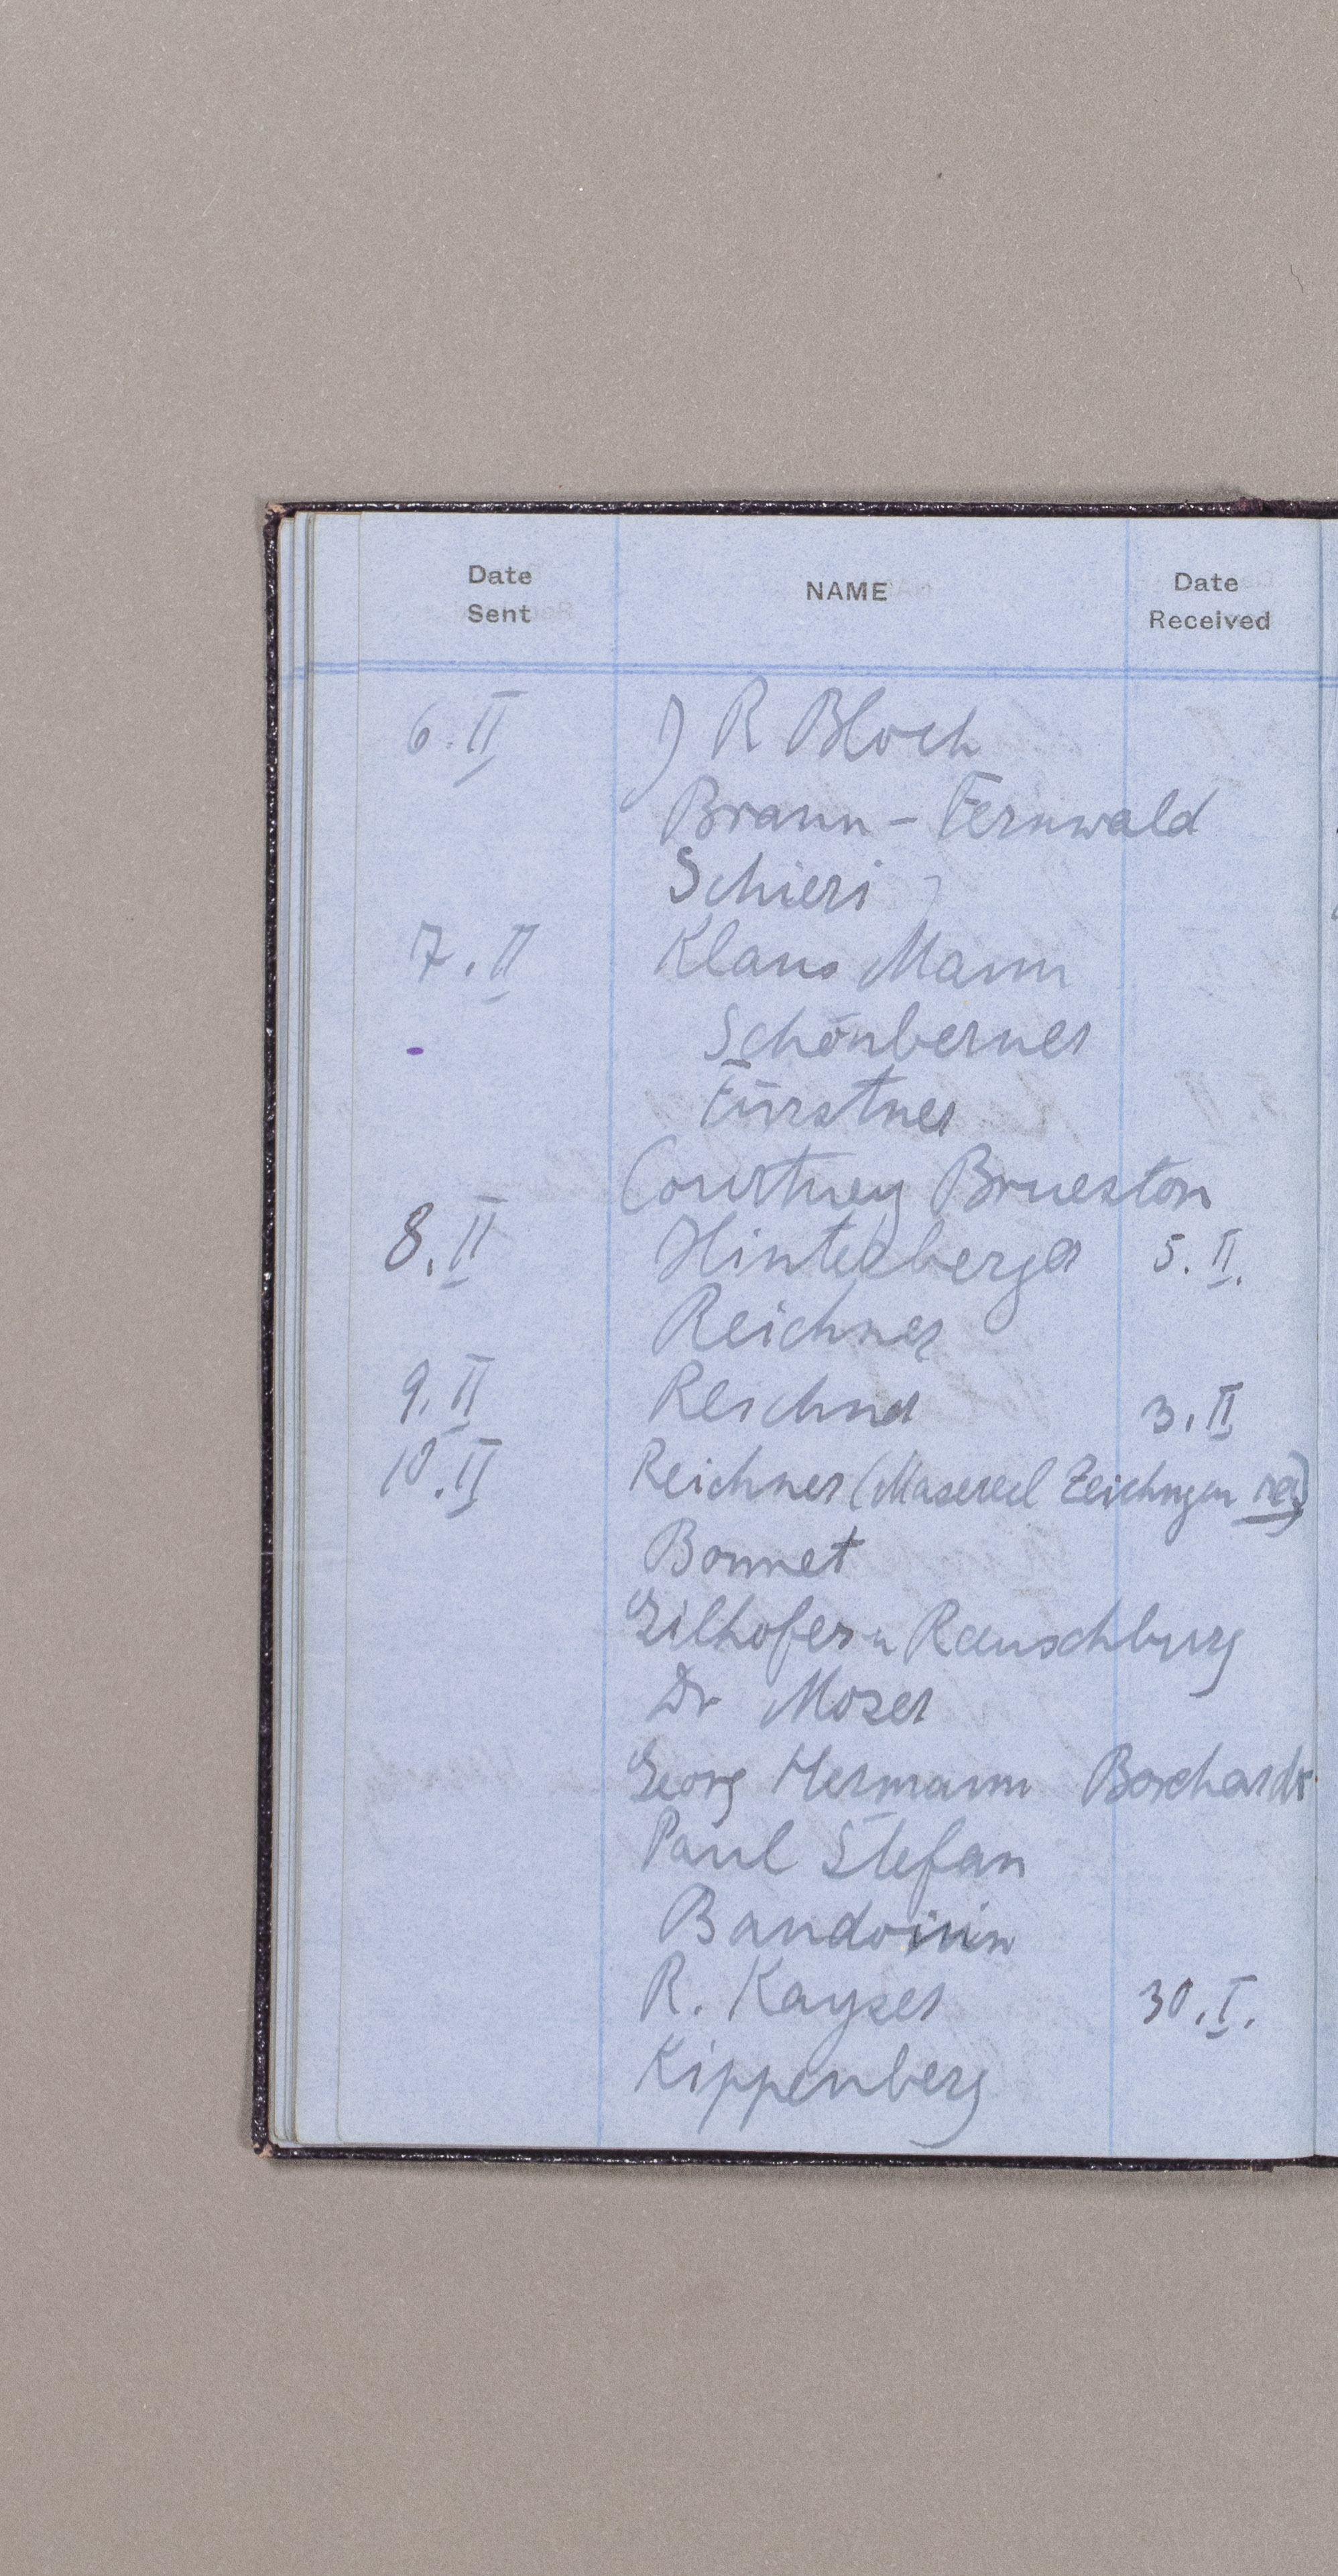 Date Sent NAME Date Received
6.II J R Bloch
Braun - Fernwald
Schieri
7.II Klaus Mann
Schönberner
Fürstner
Courtney Brueston
8.II Hinterberger 5.II.
Reichner
9.II Reichner 3.II
10.II Reichner (Masereel Zeichngen rec)
Bonnet
Gilhofer u Ranschburg
Dr Moser
Georg Hermann Borchardt
Paul Stefan
Baudouin
R. Kayser 30.I.
Kippenberg